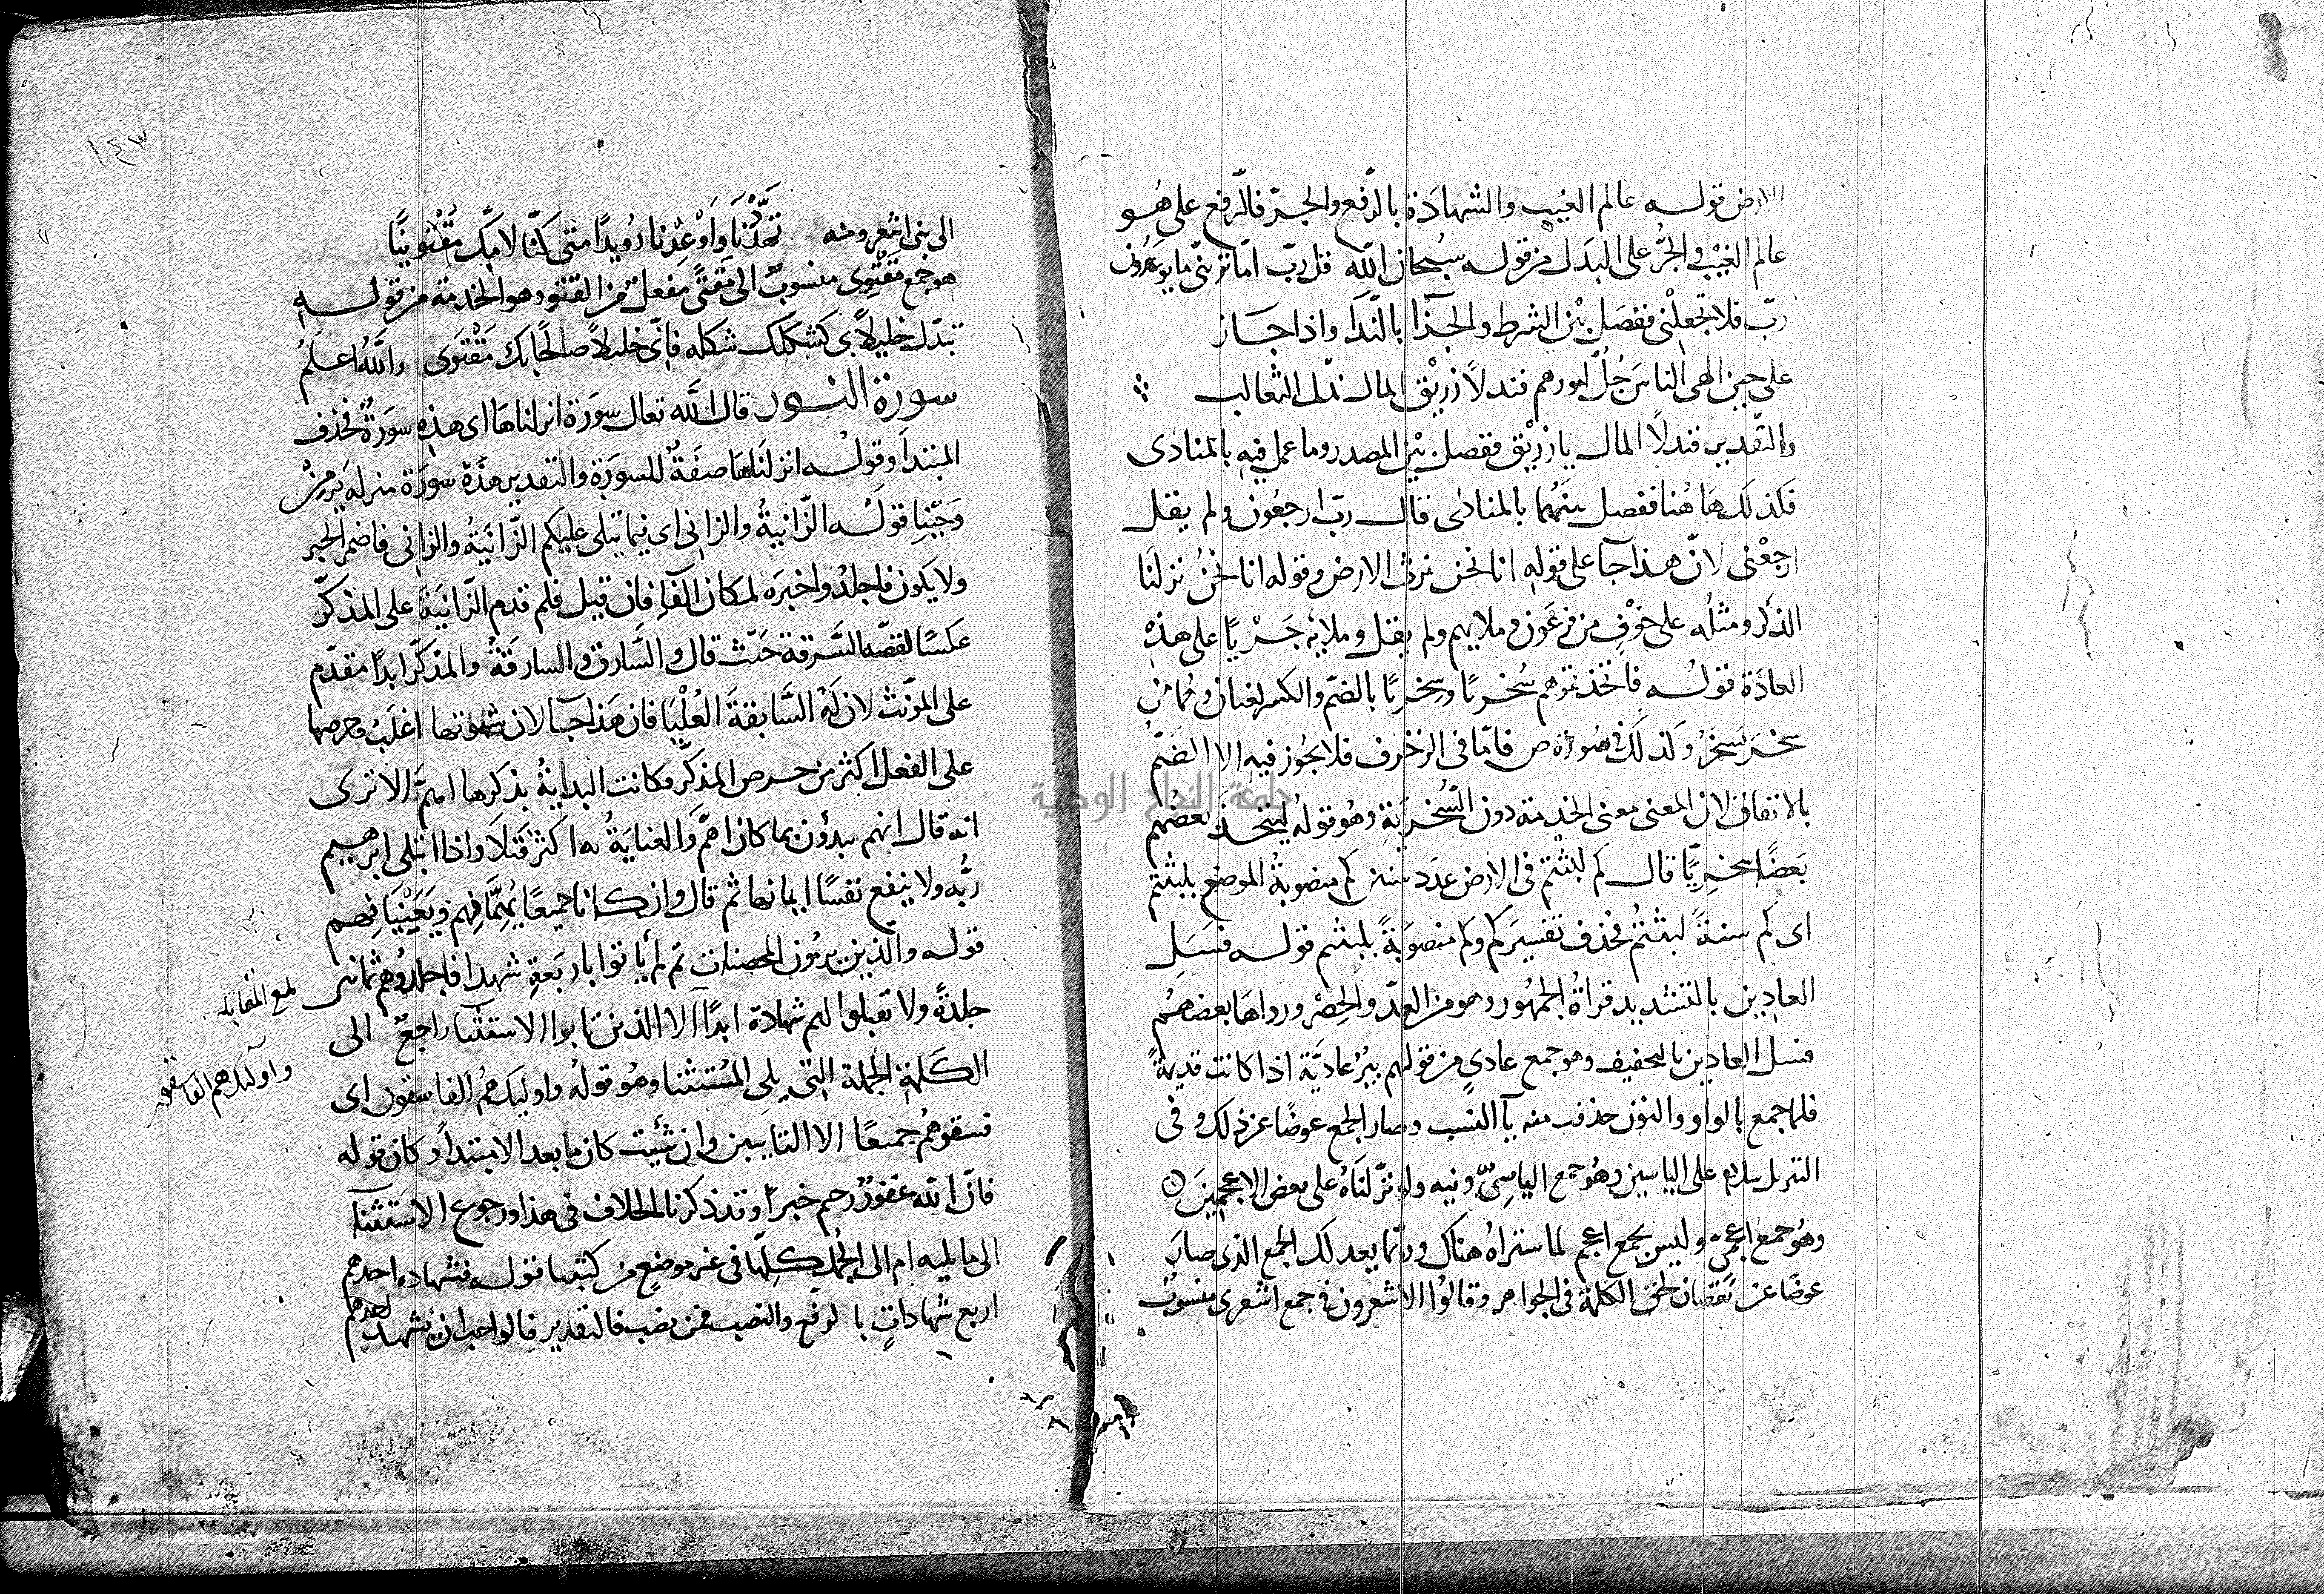 الارض قوله عالم الغيب والشهادة بالرفع والجر فالرفع على هو
عالم الغيب والجر على البدل من قوله سبحان الله قل رب اما تريني ما يوعدون
رب فلا تجعلني ففصل بين الشرط والجزا بالندا واذا جاز
على حين الهى الناس جل امورهم فندلا زريق المال ندل الثعالب
والتقدير فندلا المال يا زريق ففصل بين المصدر وما عمل فيه بالمنادى
فكذلك هاهنا ففصل بينهما بالمنادى قال رب ارجعون ولم يقل
ارجعني لان هذا جا على قوله انا نحن نرث الارض وقوله انا نحن نزلنا
الذكر ومثله على خوف من فرعون وملايهم ولم يقل وملايه جريا على هذه
العادة قوله فاتخذتموهم سخريا وسخريا بالضم والكسر لغتان وهما من
سخر يسخر وكذلك في سورة ص فاما في الزخرف فلا يجوز فيه الا الضم
بالاتفاق لان المعنى معنى الخدمة دون السخرية وهو قوله ليتخذ بعضهم
بعضا سخريا قال كم لبثتم في الارض عدد سنين كم منصوبة الموضع بلبثتم
اى كم سنة لبثتم فحذف تفسير كم وكم منصوبة بلبثتم قوله فسل
العادين بالتشديد قراة الجمهور وهو من العد والحصر ورواها بعضهم
فسل العادين بالتخفيف وهو جمع عادي من قولهم بير عادية اذا كانت قديمة
فلما جمع بالواو والنون حذف منه يآ النسب وصار الجمع عوضا عن ذلك وفي
التنزيل سلام على الياسين وهو جمع الياسي وفيه ولو نزلناه على بعض الاعجمين
وهو جمع اعجمي وليس بجمع اعجم لما ستراه هناك وربما يعد لك الجمع الذى صار
عوضا عن نقصان لحق الكلمة في الجواهر وقالوا الاشعرون في جمع اشعرى منسوب
١٤٣
الى بنى اشعر ومنه تهددنا واوعدنا رويدا متى كنا لامك مقتوينا
هو جمع مقتوى منسوب الى مقتى مفعل من القتو وهو الخدمة من قوله
تبدل خليلا بى كشكلك شكله فانى خليلا صالحا بك مقتوى والله اعلم
سورة النور قال الله تعالى سورة انزلناها اى هذه سورة فحذف
المبتدا وقوله انزلناها صفة للسورة والتقدير هذه سورة منزله
قوله الزانية والزاني اى فيما يتلى عليكم الزانية والزاني فاضمر الخبر
ولا يكون فاجلدوا خبره لمكان الفا فان قيل فلم قدم الزانية على المذكر
عكسا لقصه السرقة حيث قال والسارق والسارقة والمذكر ابدا مقدم
على المونث لان له السابقة العليا فان هذا جا لان شهوتها اغلب وحرصها
على الفعل اكثر من حرص المذكر وكانت البداية بذكرها اهم الا ترى
انه قال انهم يبدؤن بما كان اهم والعناية به اكثر قتلا واذا ابتلى ابرهيم
ربه ولا ينفع نفسا ايمانها ثم قال وان كانا جميعا يهمانهم ويعنيانهم
قوله والذين يرمون المحصنات ثم لم ياتوا باربعة شهدا فاجلدوهم ثمانين
جلدة ولا تقبلوا لهم شهادة ابدا الا الذين تابوا الاستثنا راجع الى
الكلمة الجملة التى يلى المستثنا وهو قوله واوليك هم الفاسقون اى
فسقوهم جميعا الا التايبين وان شئيت كان ما بعد الا مبتدا وكان قوله
فان الله غفور رحيم خبرا وقد ذكرنا الخلاف في هذا ورجوع الاستثنا
الى ما يليه ام الى الجمل كلها في غير موضع من كتبنا قوله فشهاده احدهم
اربع شهادات بالرفع والنصب فمن نصب فالتقدير فالواجب ان يشهد احدهم
بلغ المقابله
واولئك هم الفاسقون